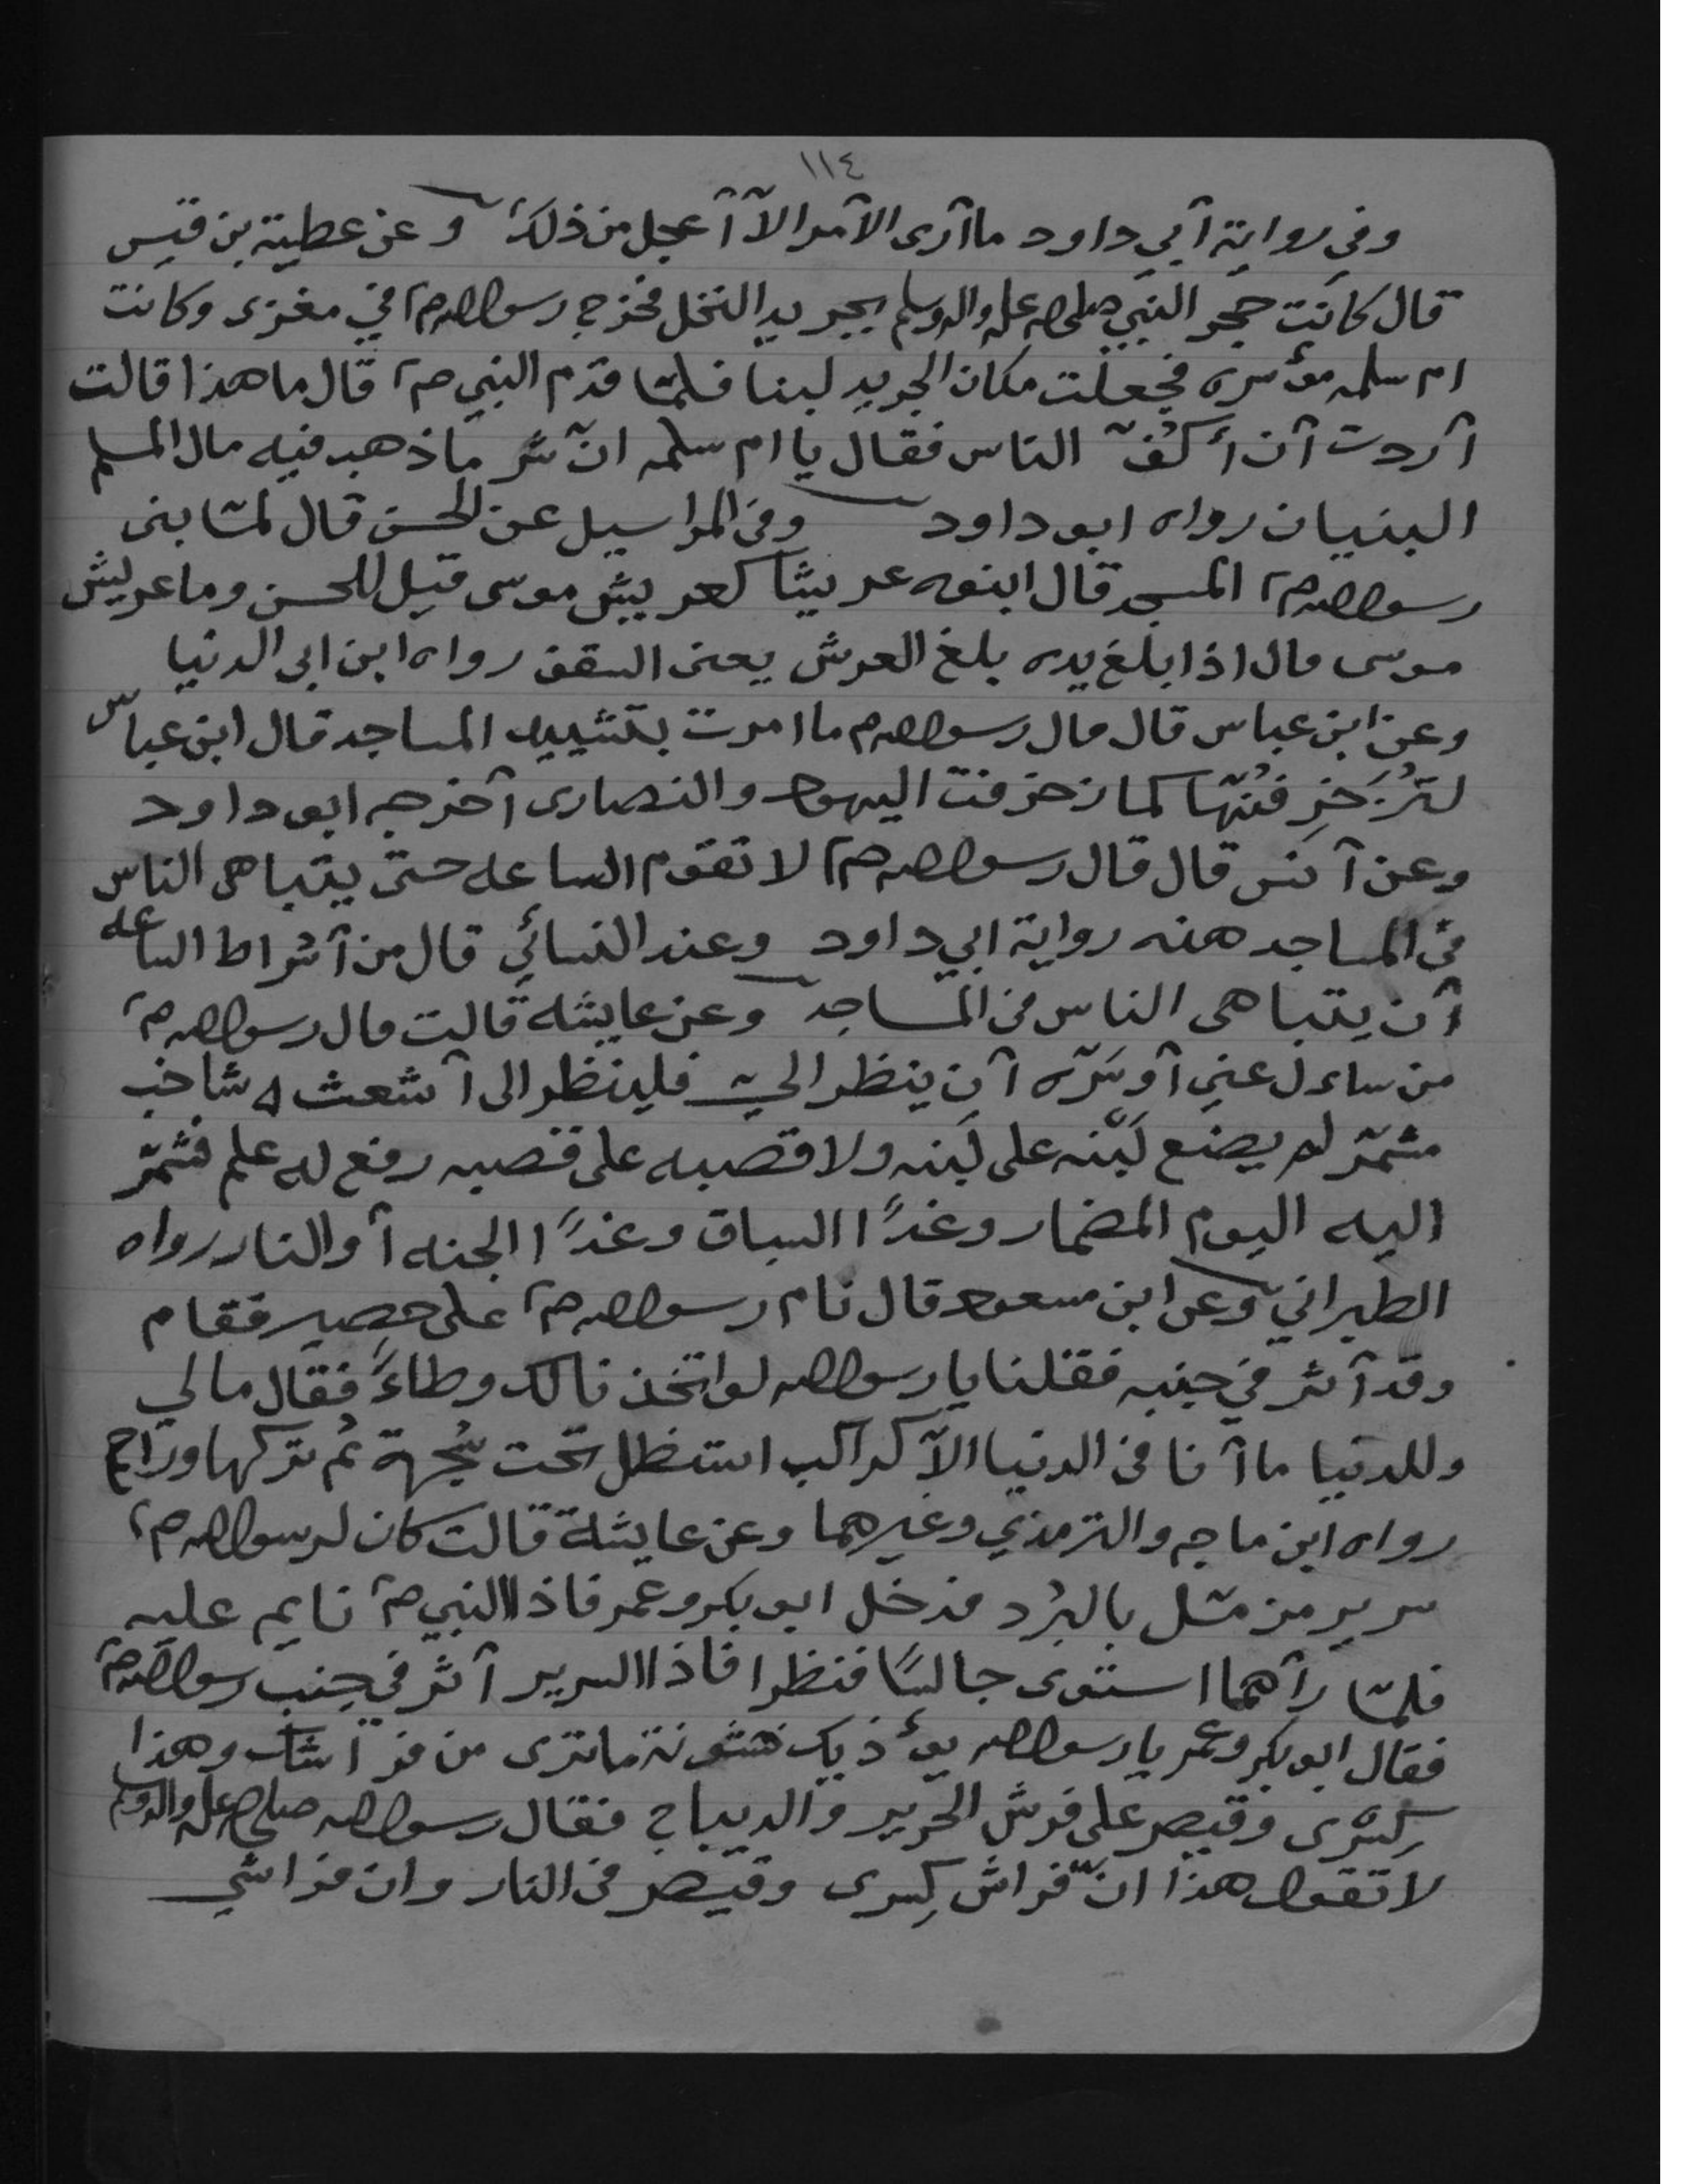 ١١٤
وفي رواية أبي داود ما أرى الأمر الآ أعجل من ذلك وعن عطية بن قيس
قال كانت حجر النبي صلى الله عليه واله وسلم بجريد النخل فخرج رسول الله صم في مغزى وكانت
ام سلمه مؤسره فجعلت مكان الجريد لبنا فلمّا قدم النبي صم قال ما هذا قالت
أردت أن أكفّ الناس فقال يا ام سلمه انّ شر ما ذهب فيه مال المسلم
البنيان رواه ابو داود وفي المراسيل عن الحسن قال لمّا بنى
رسول الله صم المسجد قال ابنوه عريشا كعريش موسى قيل للحسن وما عريش
موسى قال اذا بلغ يده بلغ العرش يعنى السقف رواه ابن ابي الدنيا
وعن ابن عباس قال قال رسول الله صم ما امرت بتشييد المساجد قال ابن عباس
لتُزَخرِفُنّها كما زخرفت اليهود والنصارى أخرجه ابو داود
وعن أنس قال قال رسول الله صم لا تقوم الساعه حتى يتباهى الناس
في المساجد هذه رواية ابي داود وعند النسائي قال من أشراط الساعه
أن يتباهى الناس في المساجد وعن عايشه قالت قال رسول الله صم
من ساءل عني أو سَرّه أن ينظر اليّ فلينظر الى أشعث شاحب
مشمّر لم يضع لَبنه على لَبنه ولا قصبه على قصبه رفع له علم فشمّر
اليه اليوم المضمار وغدًا السباق وغدًا الجنه أو النار رواه
الطبراني وعن ابن مسعود قال نام رسول الله صم على حصير فقام
وقد أثر في جنبه فقلنا يا رسول الله لو اتخذنا لك وطاءً فقال مالي
وللدنيا ما أنا في الدنيا الآ كراكب استظل تحت شجرة ثم تركها وراح
رواه ابن ماجه والترمذي وغيرهما وعن عايشة قالت كان لرسول الله صم
سرير من مشل بالبرد فدخل ابو بكر وعمر فاذا النبي صم نايم عليه
فلمّا رأهما استوى جالسًا فنظرا فاذا السرير أثر في جنب رسول الله صم
فقال ابو بكر وعمر يا رسول الله يؤذيك خشونة ما ترى من فراشك وهذا
كِسرى وقيصر على فرش الحرير والديباج فقال رسول الله صلى الله عليه واله وسلم
لا تقولا هذا انّ فراش كِسرى وقيصر في النار وان فراشي